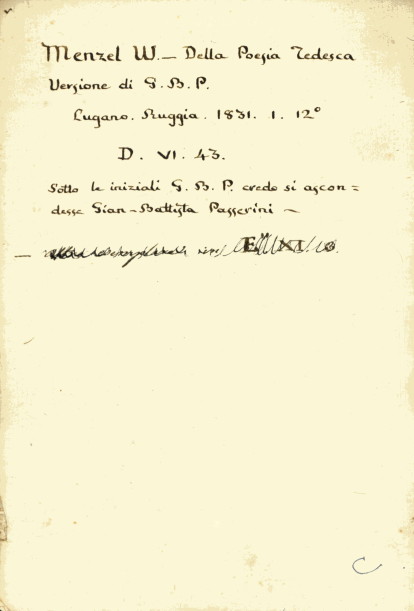 Menzel W. — Della Poesia Tedesca
Versione di G. B. P.
Lugano. Ruggia. 1831. 1. 12°
D. VI. 43.
Sotto le iniziali G. B. P. credo si ascon=
desse Gian-Battista Passerini —
C